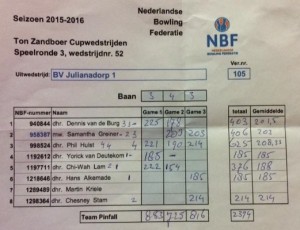 Seizoen 2015-2016
Nederlandse
Bowling
Federatie
NBF
Ton Zandboer Cupwedstrijden
Speelronde 3, wedstrijdnr. 52
Ver.nr
Uitwedstrijd: BV Julianadorp 1 105
Baan 3 4 3
NBF-nummer naam Game 1 Game 2 Game 3 totaal Gemiddelde
1 940844 dhr. Dennis van de Burg 225 178 403 201,5
2 958387 mw. Samantha Greiner 203 203 406 203
3 998524 dhr. Phil Hulst 4 4 221 190 214 625 208,33
4 1192612 dhr. Yorick van Deutekom 185 - 185 185
5 1197771 dhr. Chi-Wah Lam 222 154 376 188
6 1218646 dhr. Hans Alkemade 185 185 185
7 1289489 dhr. Martin Kriele
8 1298364 dhr. Chesney Stam 214 214 214
Team Pinfall 853 725 816 2394